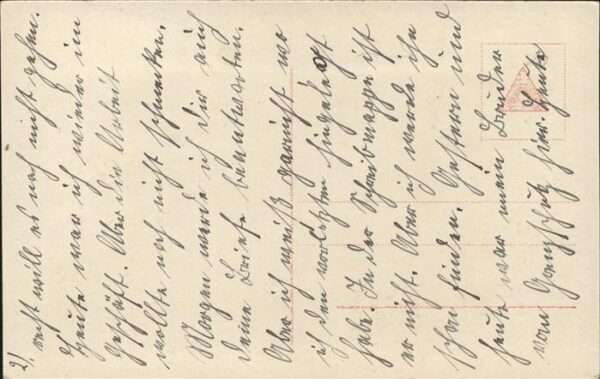 2/. recht will es noch nicht gehen.
Heute war ich wieder im
Geschäft. Aber die Arbeit
wollte noch nicht schmecken.
Morgen werde ich Dir auch
Deine Briefe beantworten.
Aber ich weiß garnicht wo
ich den vorletzten hingelegt
habe. In der Schreibmappe ist
er nicht. Aber ich werde ihn
schon finden. Gestern und
heute war mein Bruder
vom hier. Heute